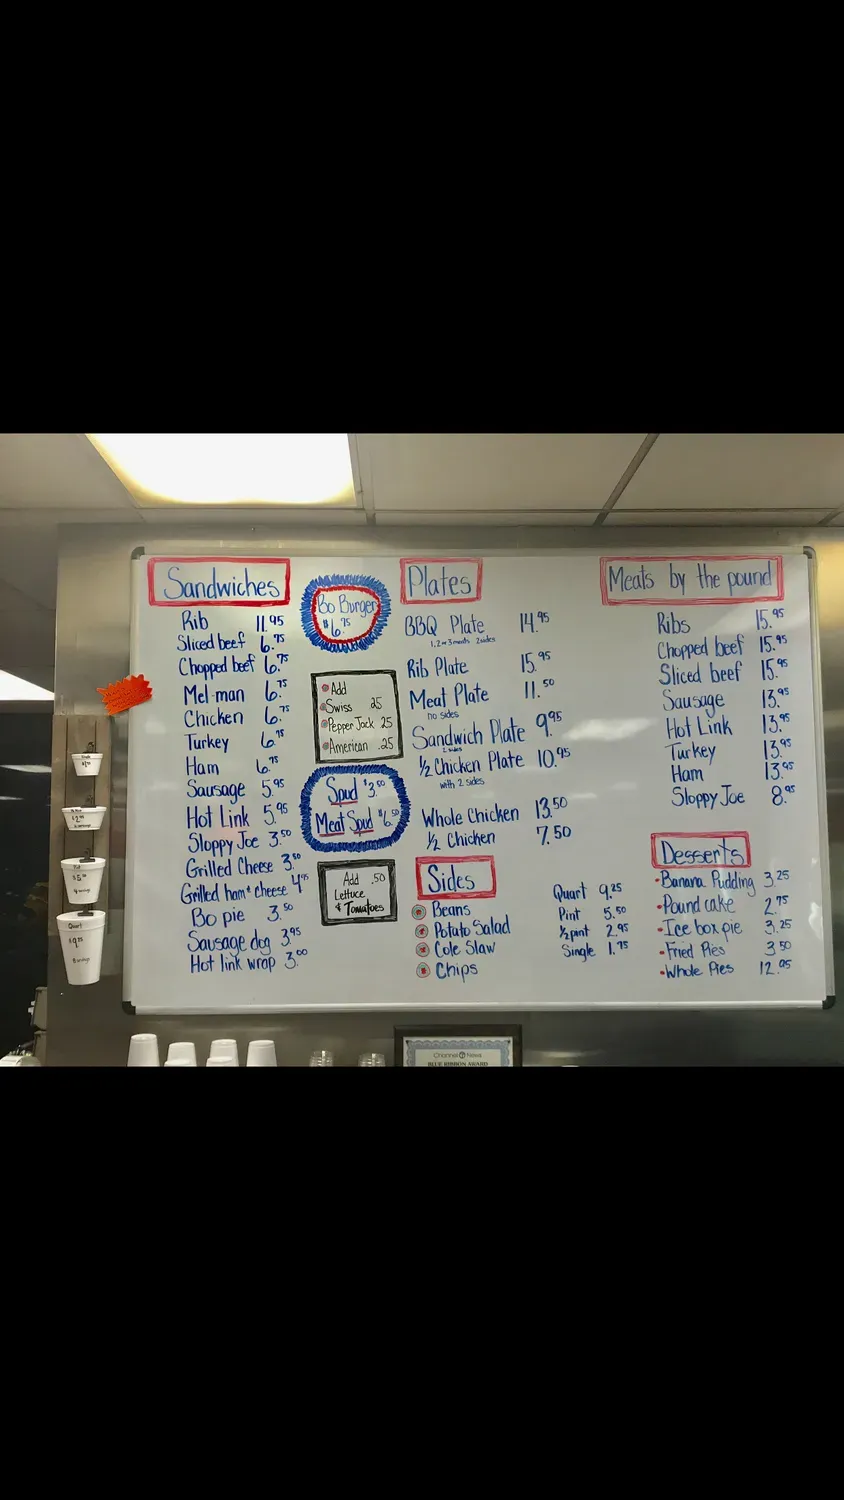 Sandwiches
Rib 11.95
Sliced beef 6.75
Chopped beef 6.75
Mel-man 6.75
Chicken 6.75
Turkey 6.75
Ham 6.75
Sausage 5.95
Hot Link 5.95
Sloppy Joe 3.50
Grilled Cheese 3.50
Grilled ham & cheese 4.95
Bo pie 3.50
Sausage dog 3.95
Hot link wrap 3.00
Bo Burger
$6.75
Add
Swiss 25
Pepper Jack 25
American .25
Spud $3.50
Meat Spud $6.50
Add .50
Lettuce
& Tomatoes
Plates
BBQ Plate 14.95
1, 2 or 3 meats 2 sides
Rib Plate 15.95
Meat Plate 11.50
no sides
Sandwich Plate 9.95
2 sides
1/2 Chicken Plate 10.95
with 2 sides
Whole Chicken 13.50
1/2 Chicken 7.50
Sides
Beans
Potato Salad
Cole Slaw
Chips
Quart 9.25
Pint 5.50
1/2 pint 2.95
Single 1.75
Meats by the pound
Ribs 15.95
Chopped beef 15.95
Sliced beef 15.95
Sausage 13.95
Hot Link 13.95
Turkey 13.95
Ham 13.95
Sloppy Joe 8.95
Desserts
Banana Pudding 3.25
Pound cake 2.75
Ice box pie 3.25
Fried Pies 3.50
Whole Pies 12.95
Quart
Channel 7 News
BLUE RIBBON AWARD